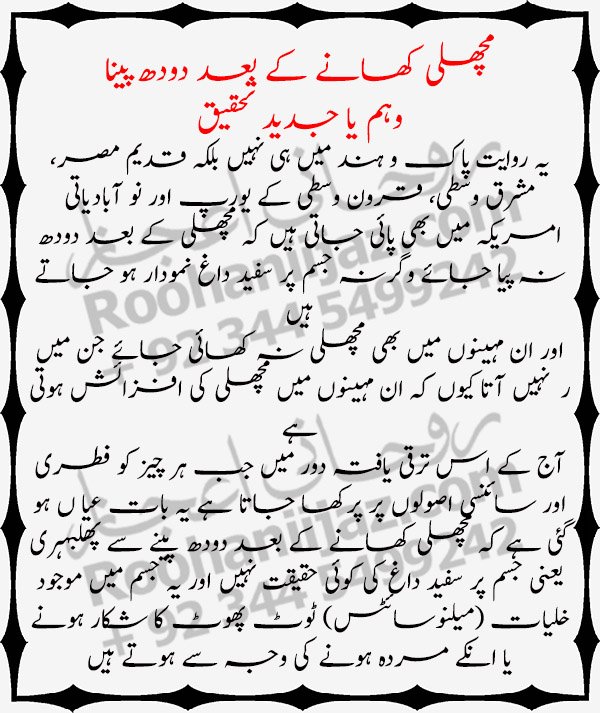 مچھلی کھانے کے بعد دودھ پینا
وہم یا جدید تحقیق
یہ روایت پاک و ہند میں ہی نہیں بلکہ قدیم مصر،
مشرق وسطیٰ، قرون وسطیٰ کے یورپ اور نو آبادیاتی
امریکہ میں بھی پائی جاتی ہیں کہ مچھلی کے بعد دودھ
نہ پیا جائے وگرنہ جسم پر سفید داغ نمودار ہو جاتے
ہیں
اور ان مہینوں میں بھی مچھلی نہ کھائی جائے جن میں
ر نہیں آتا کیوں کہ ان مہینوں میں مچھلی کی افزائش ہوتی
ہے
آج کے اس ترقی یافتہ دور میں جب ہر چیز کو فطری
اور سائنسی اصولوں پر پرکھا جاتا ہے یہ بات عیاں ہو
گئی ہے کہ مچھلی کھانے کے بعد دودھ پینے سے پھلبہری
یعنی جسم پر سفید داغ کی کوئی حقیقت نہیں اور یہ جسم میں موجود
خلیات (میلنوسائٹس) ٹوٹ پھوٹ کا شکار ہونے
یا انکے مردہ ہونے کی وجہ سے ہوتے ہیں
روحانی اعجاز
RoohaniIjaz.com
+ 92 344 5499242
روحانی اعجاز
RoohaniIjaz.com
+ 92 344 5499242